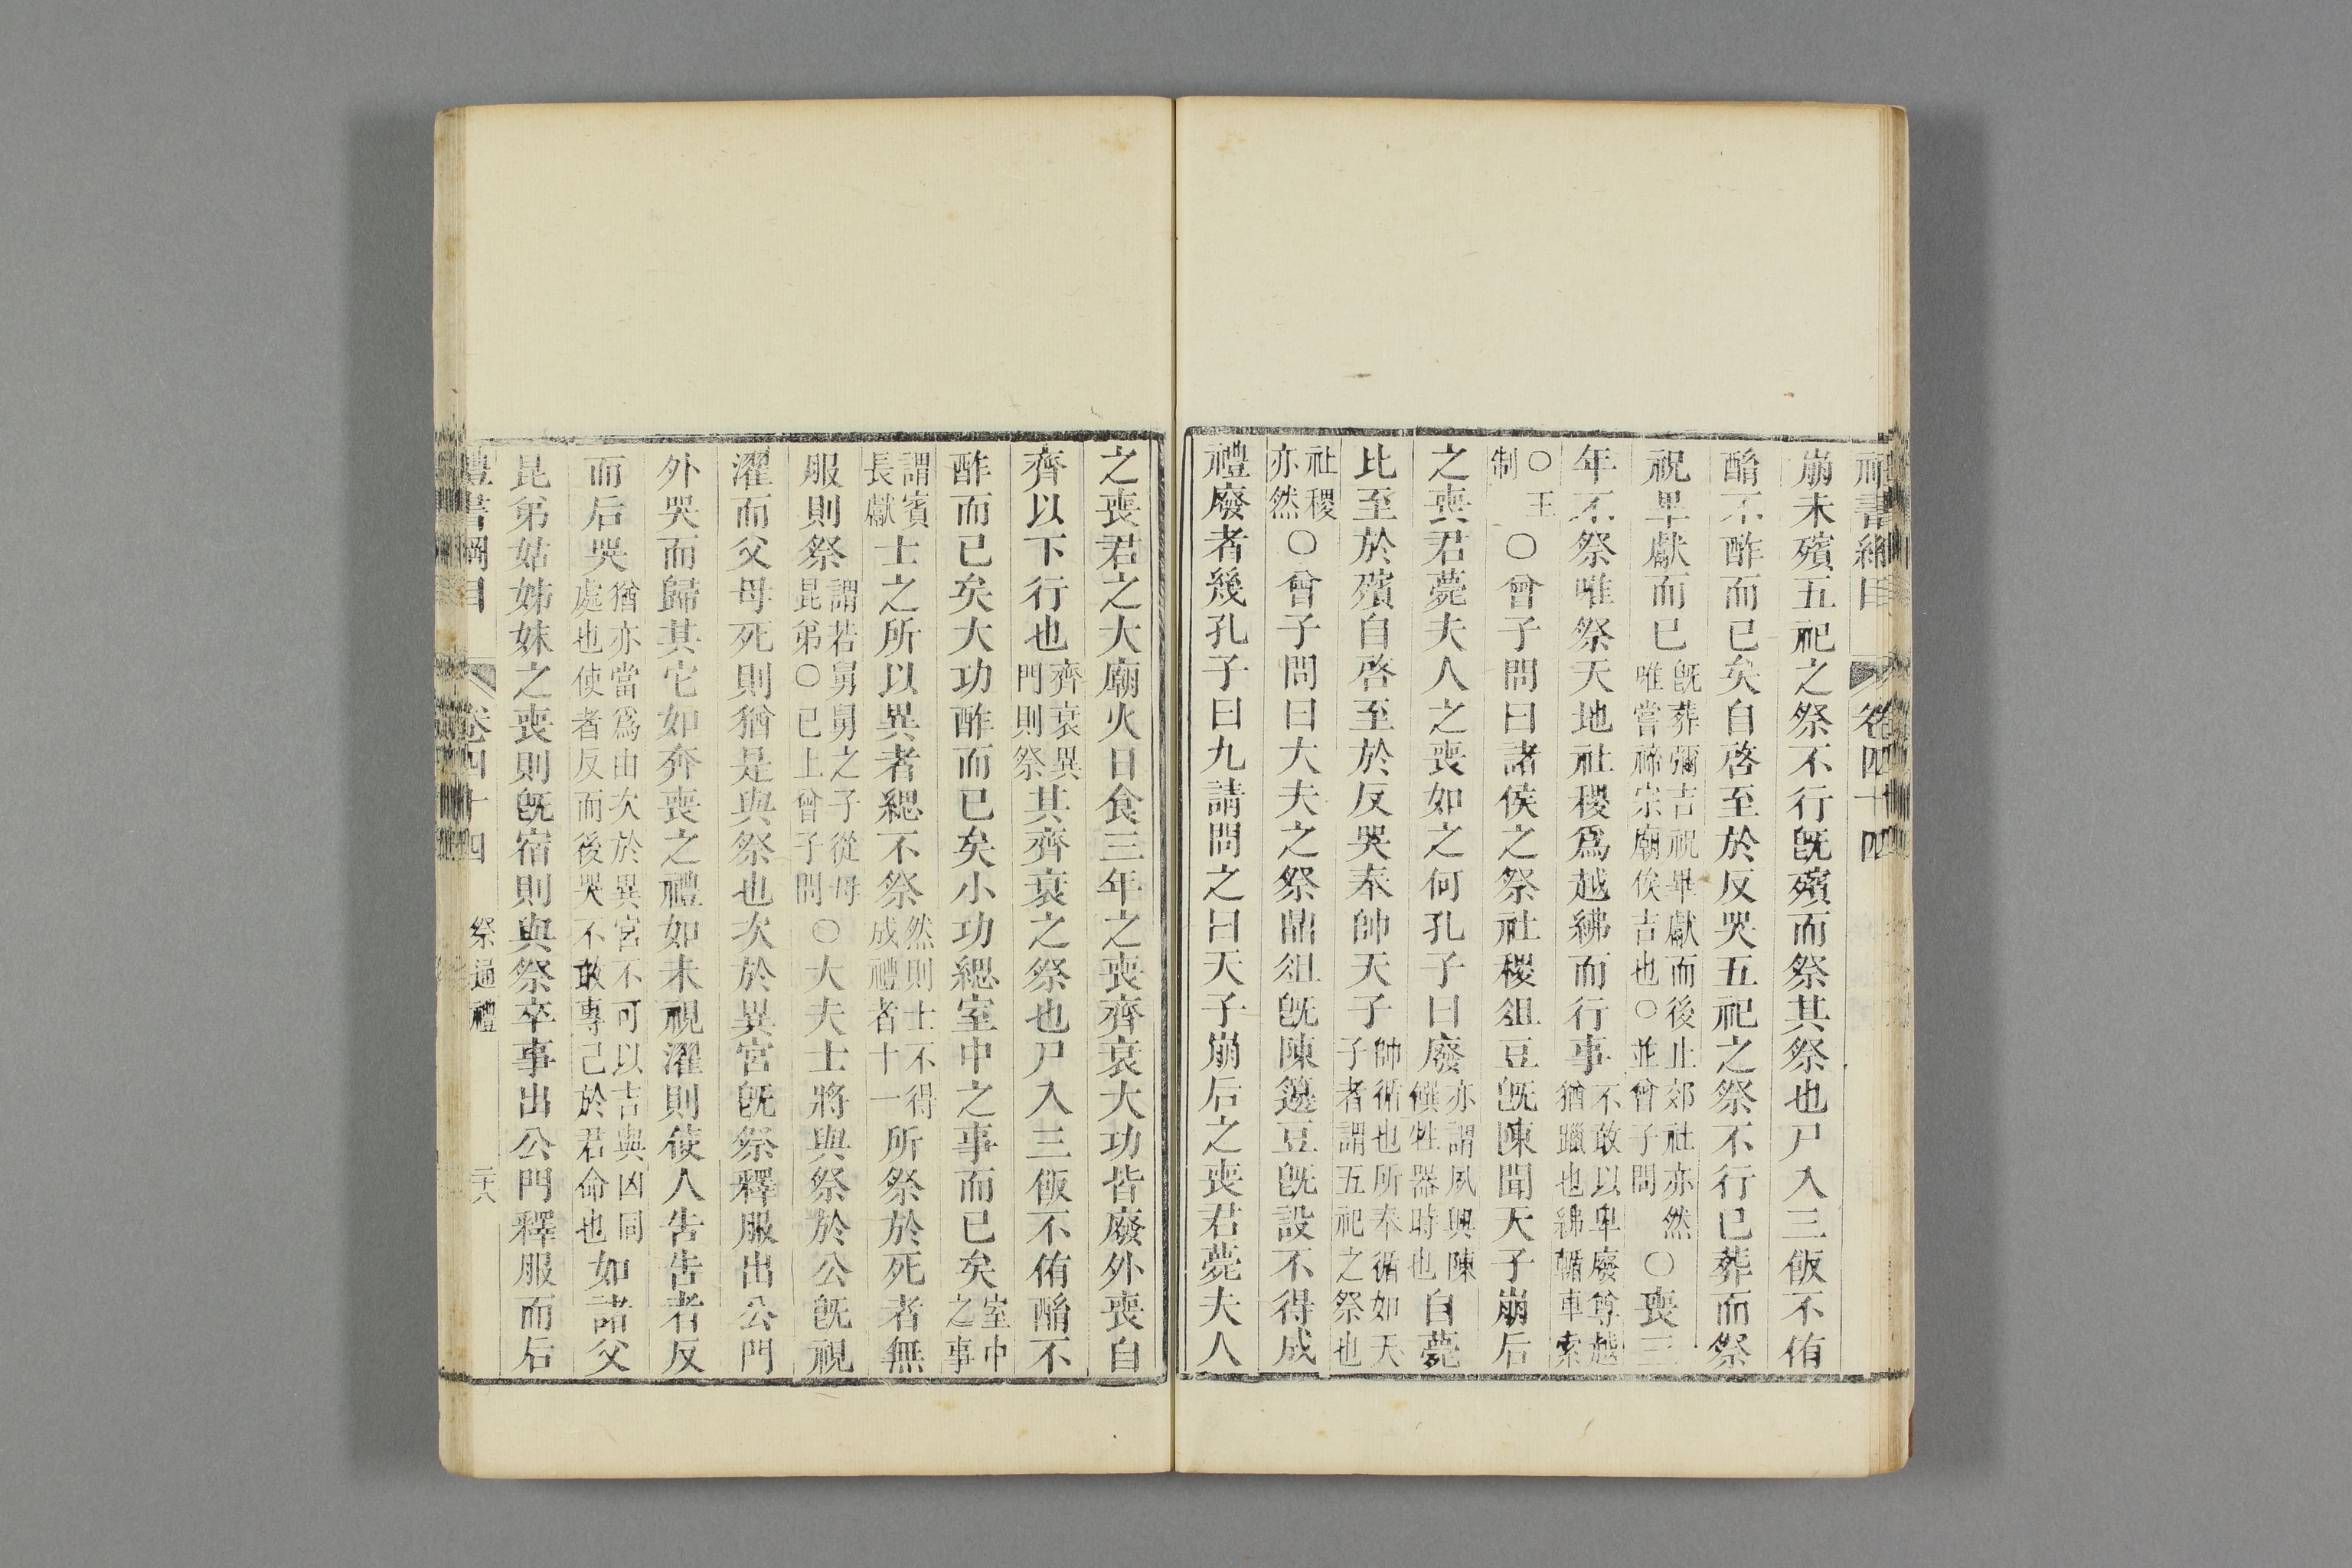 禮書綱目 卷四十四
崩未殯五祀之祭不行既殯而祭其祭也尸入三飯不侑
酳不酢而已矣自啓至於反哭五祀之祭不行已葬而祭
祝畢獻而已既葬彌吉祝畢獻而後止郊社亦然唯嘗禘宗廟俟吉也○並曾子問○喪三
年不祭唯祭天地社稷爲越紼而行事不敢以卑廢尊越猶躐也紼輴車索
○王制○曾子問曰諸侯之祭社稷俎豆既陳聞天子崩后
之喪君薨夫人之喪如之何孔子曰廢亦謂夙興陳饌牲器時也自薨
比至於殯自啓至於反哭奉帥天子帥循也所奉循如天子者謂五祀之祭也
社稷亦然○曾子問曰大夫之祭鼎俎既陳籩豆既設不得成
禮廢者幾孔子曰九請問之曰天子崩后之喪君薨夫人
之喪君之大廟火日食三年之喪齊衰大功皆廢外喪自
齊以下行也齊衰異門則祭其齊衰之祭也尸入三飯不侑酳不
酢而已矣大功酢而已矣小功緦室中之事而已矣室中之事
謂賓長獻士之所以異者緦不祭然則士不得成禮者十一所祭於死者無
服則祭謂若舅舅之子從母昆弟○已上曾子問○大夫士將與祭於公既視
濯而父母死則猶是與祭也次於異宮既祭釋服出公門
外哭而歸其它如奔喪之禮如未視濯則使人告告者反
而后哭猶亦當爲由次於異宮不可以吉與凶同處也使者反而後哭不敢專己於君命也如諸父
昆弟姑姊妹之喪則既宿則與祭卒事出公門釋服而后
禮書綱目 卷四十四 祭通禮 二十八